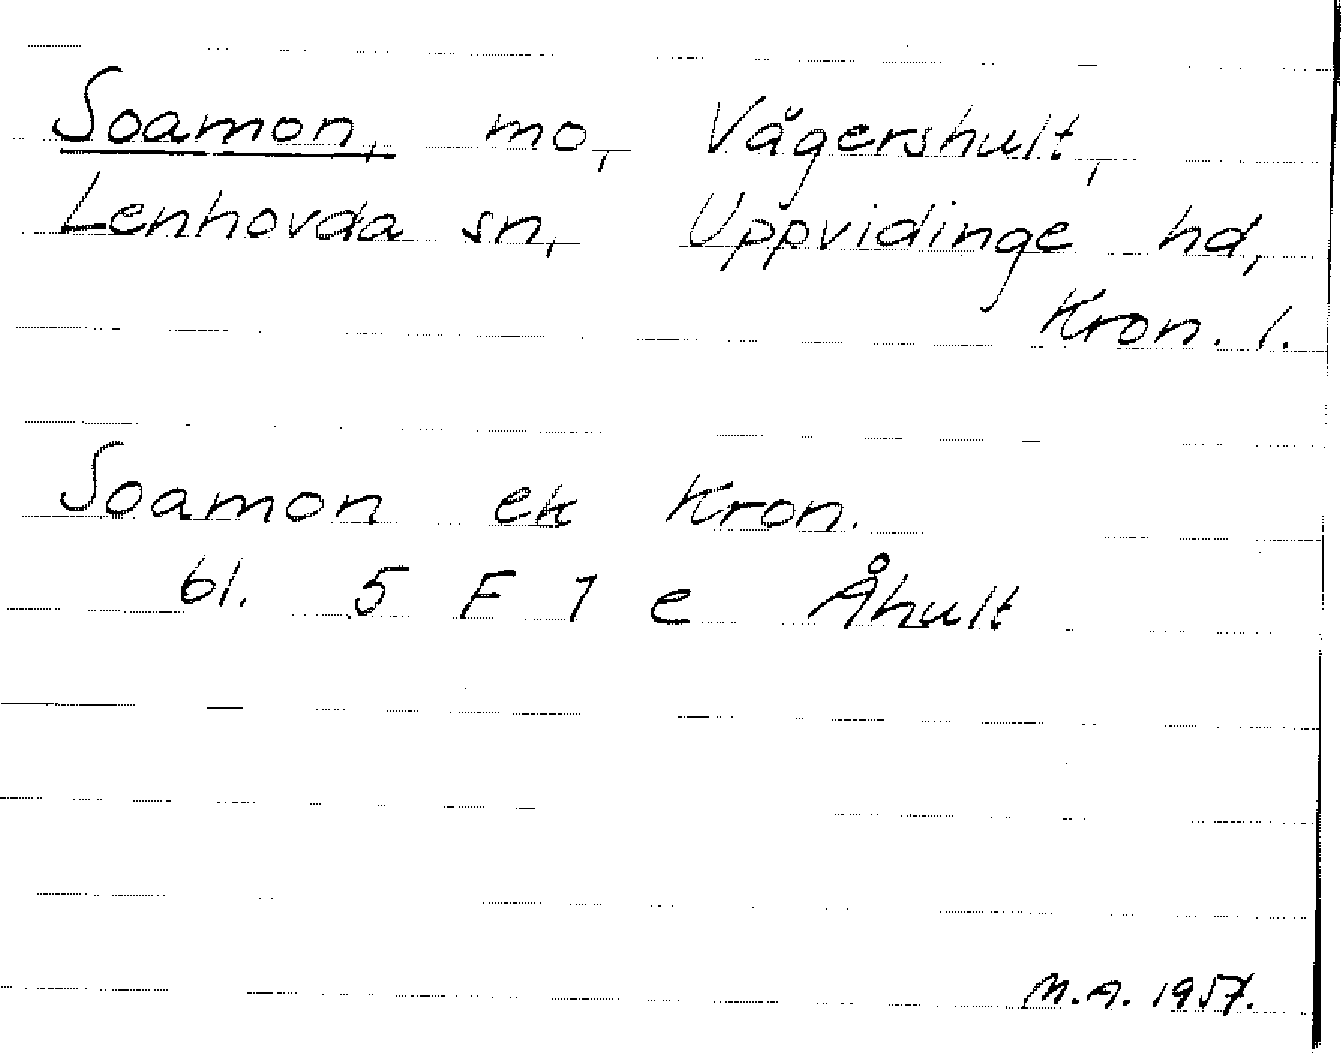 Soamon, mo, Vågershult,
Lenhovda sn, Uppvidinge hd,
Kron. l.
Soamon ek Kron.
bl. 5 F 7 e Åhult
M.A. 1957.